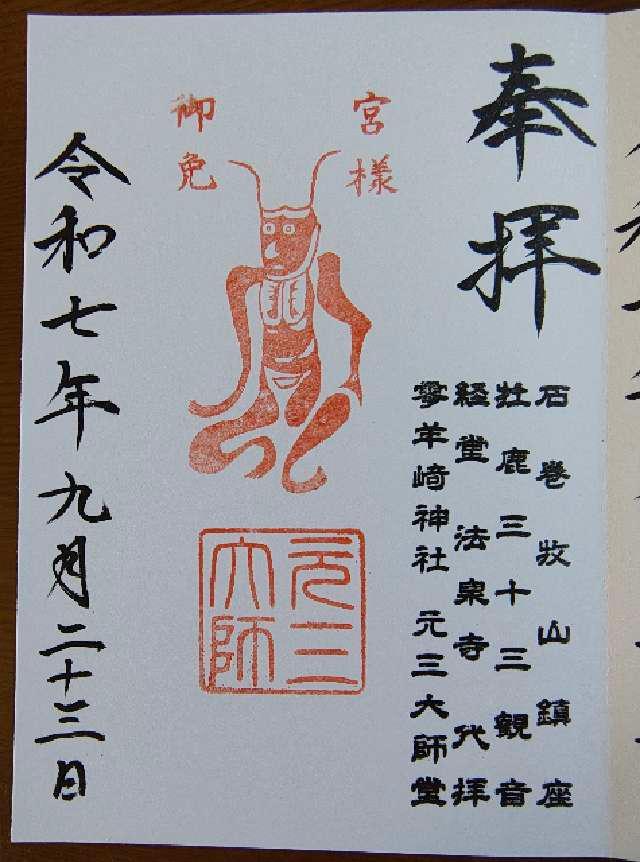 奉拝
石巻牧山鎮座
牡鹿三十三観音
経堂法泉寺代拝
零羊崎神社元三大師堂
宮様
御免
元三
大師
令和七年九月二十三日